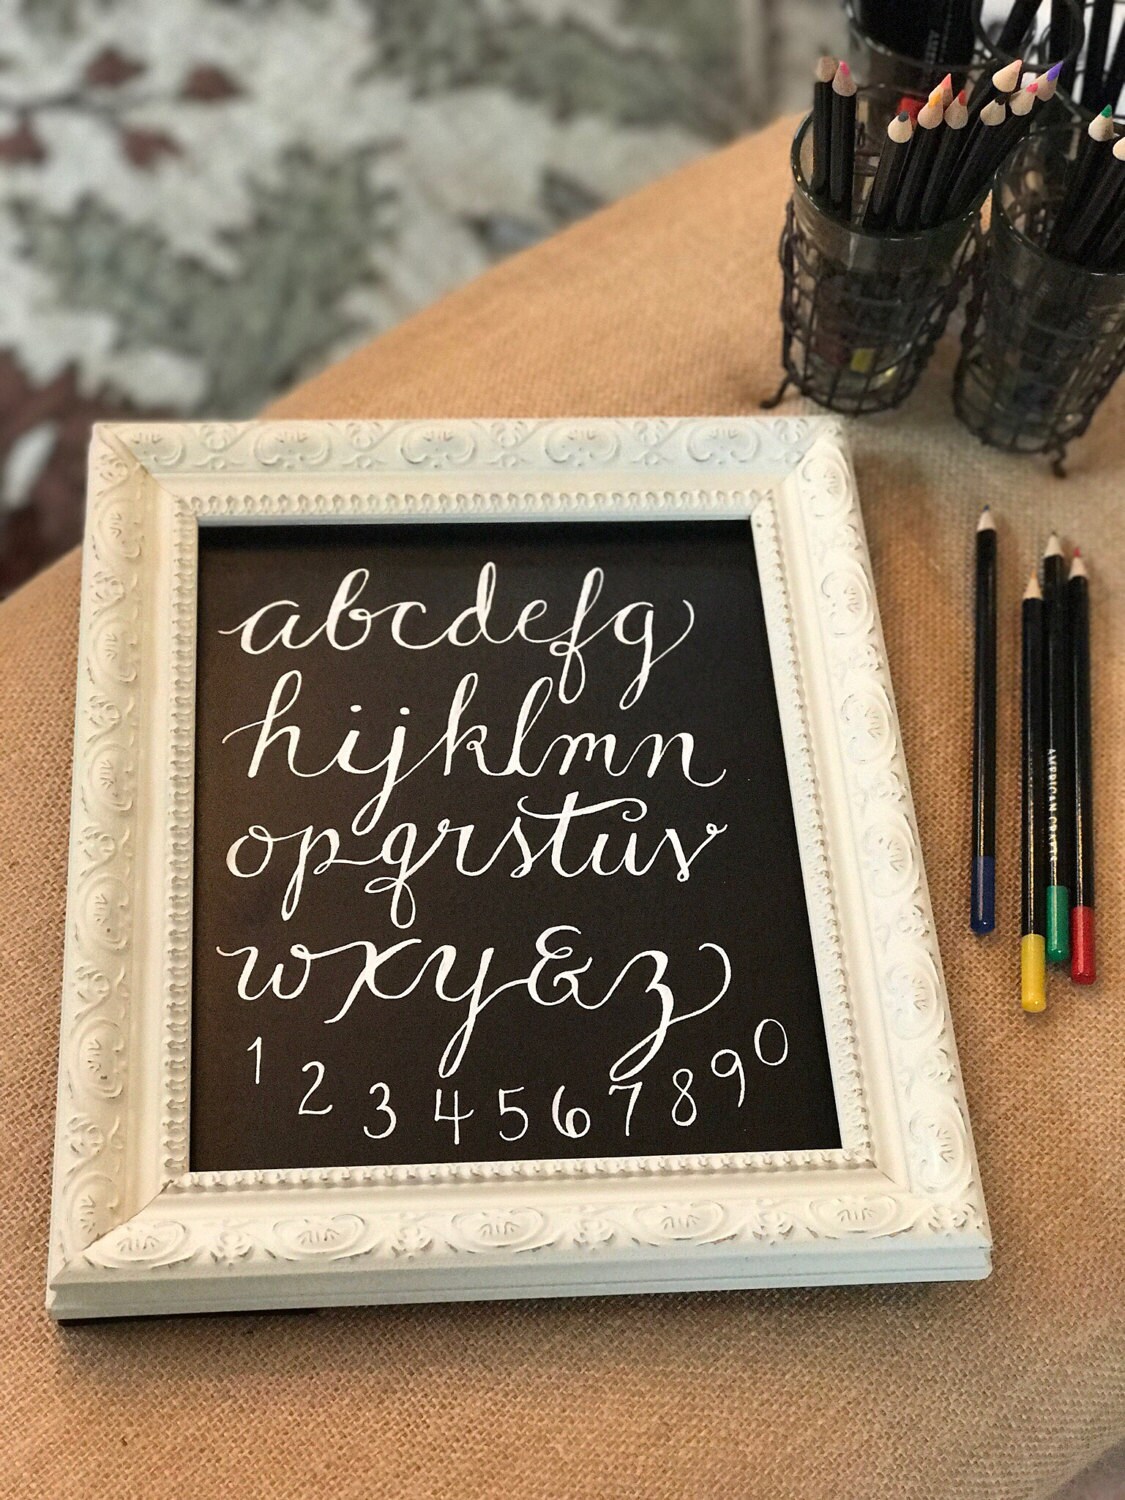 abcdefg
hijklmn
opqrstuv
wxy&z
1 2 3 4 5 6 7 8 9 0
AMERICAN CRAFTS